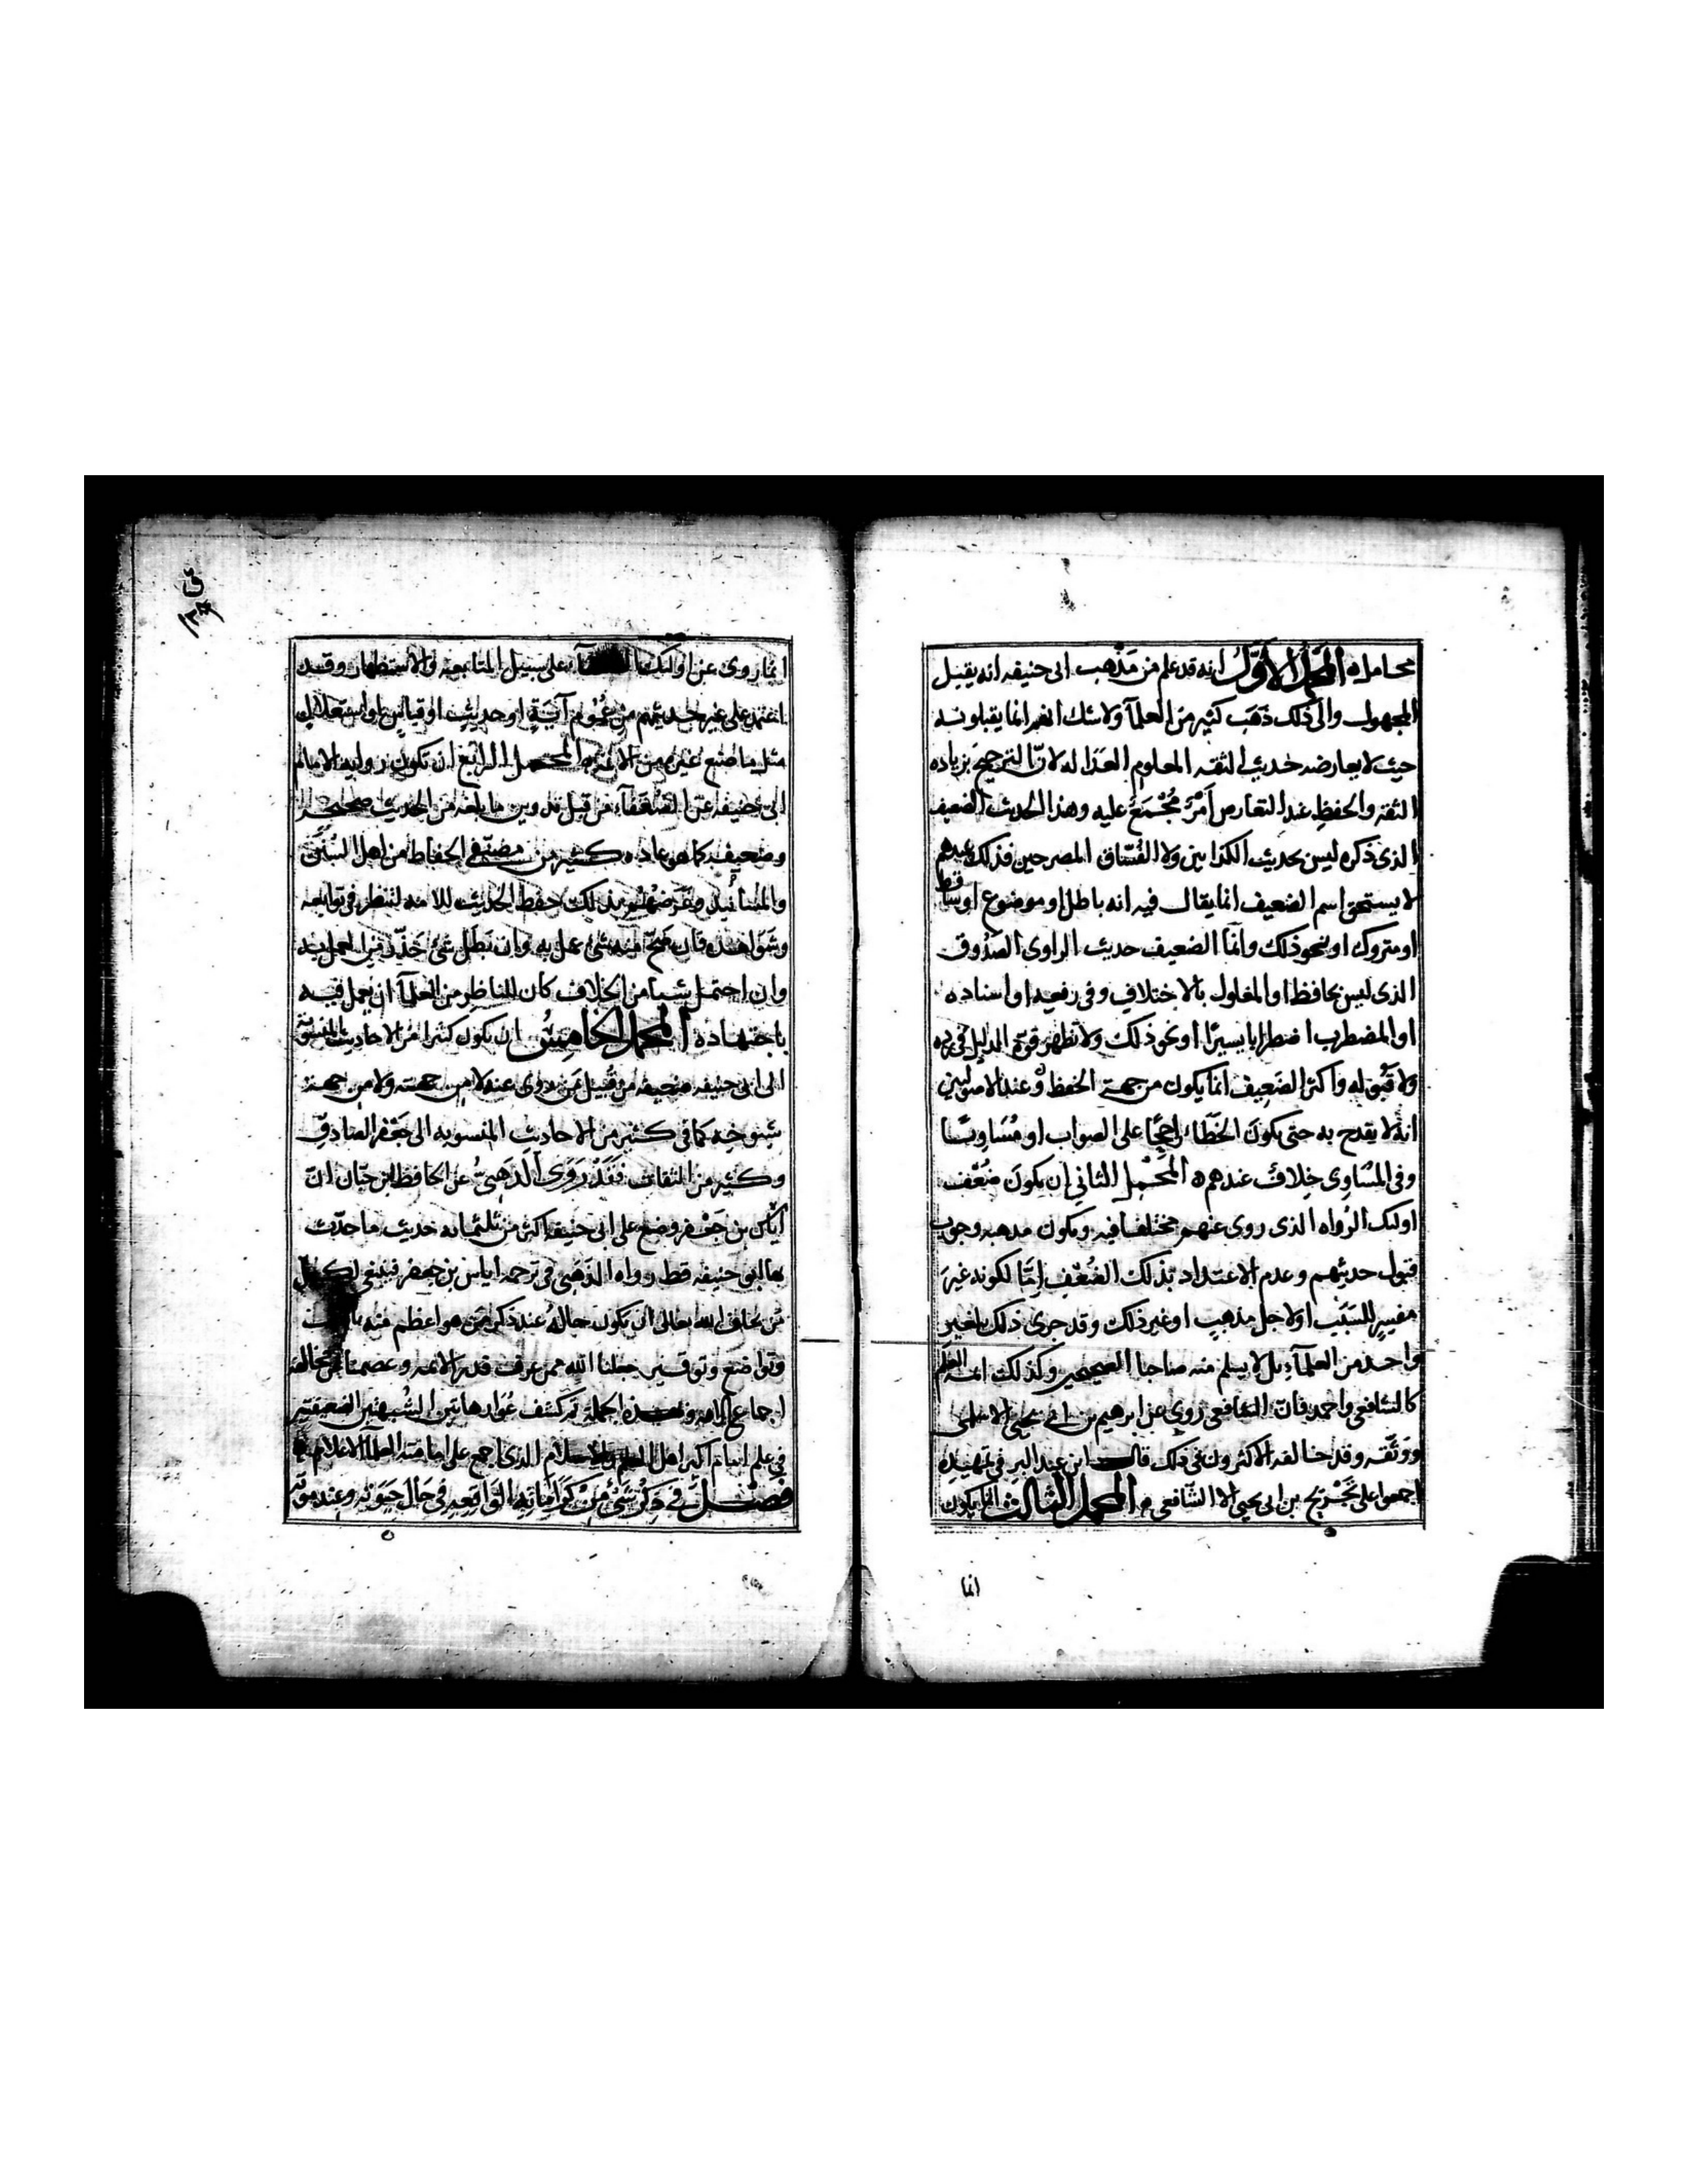 محامل ه المحمل الأوّل انه قد علم من مَذْهب ابى حنيفه انه يقبل
المجهول والى ذلك ذَهَبَ كثير من العلمآ ولا شك انهم انما يقبلونه
حيث لا يعارضه حديث الثقه المعلوم العداله لانّ الترجيح بزياده
الثقه والحفظ عند التعارض اَمْرٌ مُجْمَعٌ عليه وهذا الحديث الضعيف
الذى ذكره ليس بحديث الكذابين ولا الفُسّاق المصرحين فذلك عندهم
لا يستحق اسم الضعيف انما يقال فيه انه باطل او موضوع او ساقط
او متروك او نحو ذلك وانما الضعيف حديث الراوى الصَدُوق
الذى ليس بحافظ او المعلول بالاختلاف وفى رفعه او اسناده
او المضطرب اضطرابا يسيرًا او نحو ذلك ولا تظهر قوة الدليل فى رده
ولا قَبُوله واكثر الضَعِيف انما يكون من جهة الحفظ وعند الاصوليين
انه لا يقدح به حتى يكونَ الخَطَأ راجحًا على الصواب او مُسَاويًا
وفى المسَاوِى خِلافٌ عندهم ه المَحْمِل الثانى ان يكونَ ضُعْفُ
اوليك الرُواه الذى روى عنهم مختلفا فيه ويكون مذهبه وجوب
قبول حديثهم وعدم الاعتداد بذلك الضُعْفِ اِمّا لكونه غيرَ
مفسرٍ للسَبَبِ او لاجل مذهبٍ او غير ذلك وقد جرى ذلك لغير
واحد من العلمآء بل لا يسلم منه صاحبا الصحيحين وكذلك ائمه العلم
كالشافعى واحمد فانّ الشافعى روى عن ابرهيم بن ابى يحيى الاسلمى
ووَثَّقه وقد خالفه الاكثرون فى ذلك قال ابن عبد البر فى تمهيده
اجمعوا على تَجْرِيح بن ابى يحيى الا الشافعى ه المحمل الثالث انما يكون
انما
انما روى عن اوليك على سبيل المتابعه والاستظهار وقد
اعتمد على غير حديثهم من عُمُوم آيَةٍ او حديثٍ او قياسٍ او استدلالٍ
مثل ما صنع غيره من الائمه المحمل الرابع ان تكون رواية الامام
ابى حنيفه عن الضُعَفَآء من قبل تدوين ما بلغه من الحديث صحيحه
وضعيفه كما هو عاده كثير من مصنّفى الحفاظ من اهل السُنَنِ
والمسَانيدِ وغَرَضهم بذلك حفظ الحديث للامه لتنظر فى توابعه
وشَوَاهده فان صَحّ منه شى عمل به وان بَطل شى حَذّر من العمل به
وان احتمل شيا من الخلاف كان للناظر من العلمآ ان يعمل فيه
باجتهاده المحمل الخامس ان يكون كثير من الاحاديث المنسوبة
الى ابى حنيفه ضعيفه من قبيل مَن روى عنه لا من جهته ولا من جهة
شيوخه كما فى كثير من الاحاديث المنسوبه الى جَعْفر الصادق
وكثير من الثقات فَقَدْ رَوَى الذَهبىُّ عن الحافظ ابن حبّان انّ
ايّاس بن جَعْفر وضع على ابى حنيفه اكثر من ثلثمايه حديث ما حدّث
بها ابو حنيفه قط رواه الذَهَبى فى ترجمه اياس بن جعفر فينبغى لكل
من يخاف الله تعالى ان يكون حالُه عند ذكر من هو اعظم منه
وتواضع وتوقير جعلنا الله ممن عرف قدر الائمه وعصمنا من مخالفة
اجماع الامه وبهذه الجملة تم كشف عوار هاتين الشُبهتين الضعيفتين
فى علم امام اكبر اهل الاسلام الذى اجمع على امامته العلمآ الاعلام
فصل فى ذِكْر شَىْءٍ مِنْ كَرَامَاتِه الواقِعهِ فى حَالِ حَيَوته وعند موته